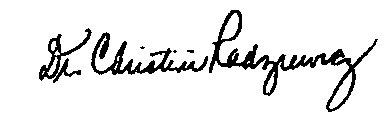 Dr. Christine Radziewicz